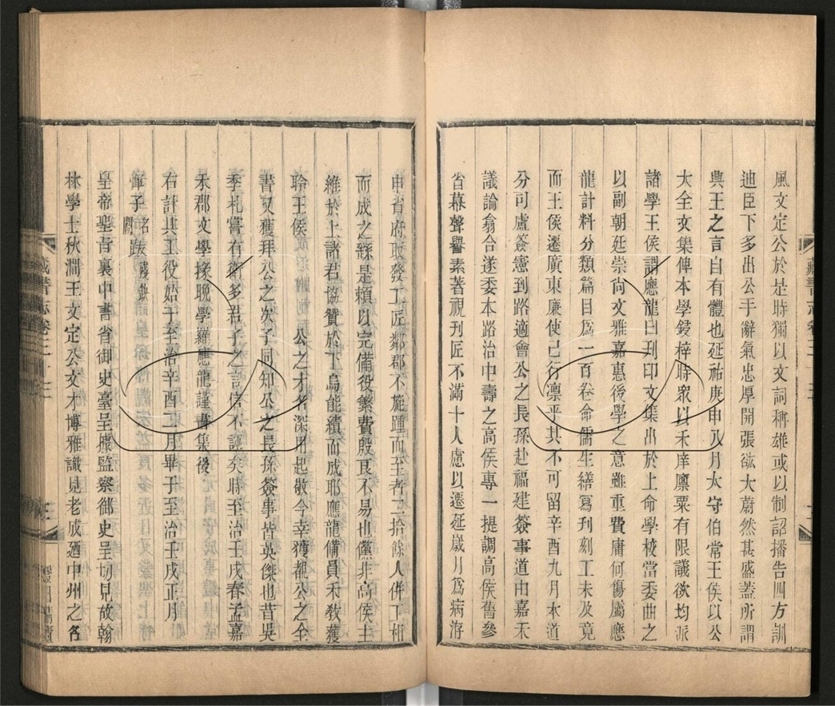 風文定公於是時獨以文詞稱雄或以制詔播告四方訓
迪臣下多出公手辭氣忠厚開張紘大蔚然其盛蓋所謂
典王之言自有體也延祐庚申八月太守伯常王侯以公
大全文集俾本學鋟梓時眾以禾庠廩粟有限議欲均派
諸學王侯謂應龍曰刋印文集出於上命學校當委曲之
以副朝廷崇尚文雅嘉惠後學之意雖重費庸何傷屬應
龍計料分類篇目為一百卷命儒生繕寫刋刻工未及竟
而王侯遷廣東廉使已行凛乎其不可留辛酉九月本道
分司盧簽憲到路適會公之長孫赴福建簽事道由嘉禾
議論翕合遂委本路治中壽之高侯專一提調高侯舊參
省幕聲譽素著視刋匠不滿十人慮以遷延歲月為病洊
申省府取發工匠鄰郡不施踵而至者二拾餘人併工相
而成之繇是賴以完備役繁費殷良不易也儻非高侯主
維於上諸君協贊於下烏能績而成耶應龍備員禾敎獲
聆王侯 公之才名深用起敬今幸獲覩公之全
書又獲拜公之次子同知公之長孫簽事皆英傑也昔吳
季札嘗有衛多君子之言信不誣矣時至治壬戌春孟嘉
禾郡文學掾晚學羅應龍謹書集後
右計其工役始于至治辛酉二月畢于至治壬戌正月
皇帝聖旨裏中書省御史臺呈據監察御史呈切見故翰
林學士秋澗王文定公文才博雅識見老成迺中州之名
藏書志卷三 三